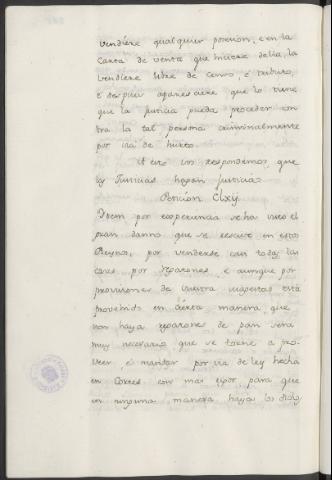 vendiere qualquier posesion, e en la
carta de venta que hiciere della, la
vendiere libre de censo, e tributo,
e despues aparesciere que lo tiene
que la Justicia pueda proceder con
tra la tal persona criminalmente
por via de hurto.
A esto vos respondemos, que
las Justicias hagan justicia.
Peticion Clxij
Itiem por experiencia se ha visto el
gran danno que se rescive en estos
Reynos, por venderse casi todas las
cosas por regatones, e aunque por
provisiones de vuestra magestad está
proveydo en cierta manera, que
non haya regatones de pan sera
muy necesario que se torne a pro
veer, e mandar por via de ley hecha
en Cortes con mas rigor, para que
en ninguna manera haya los dichos